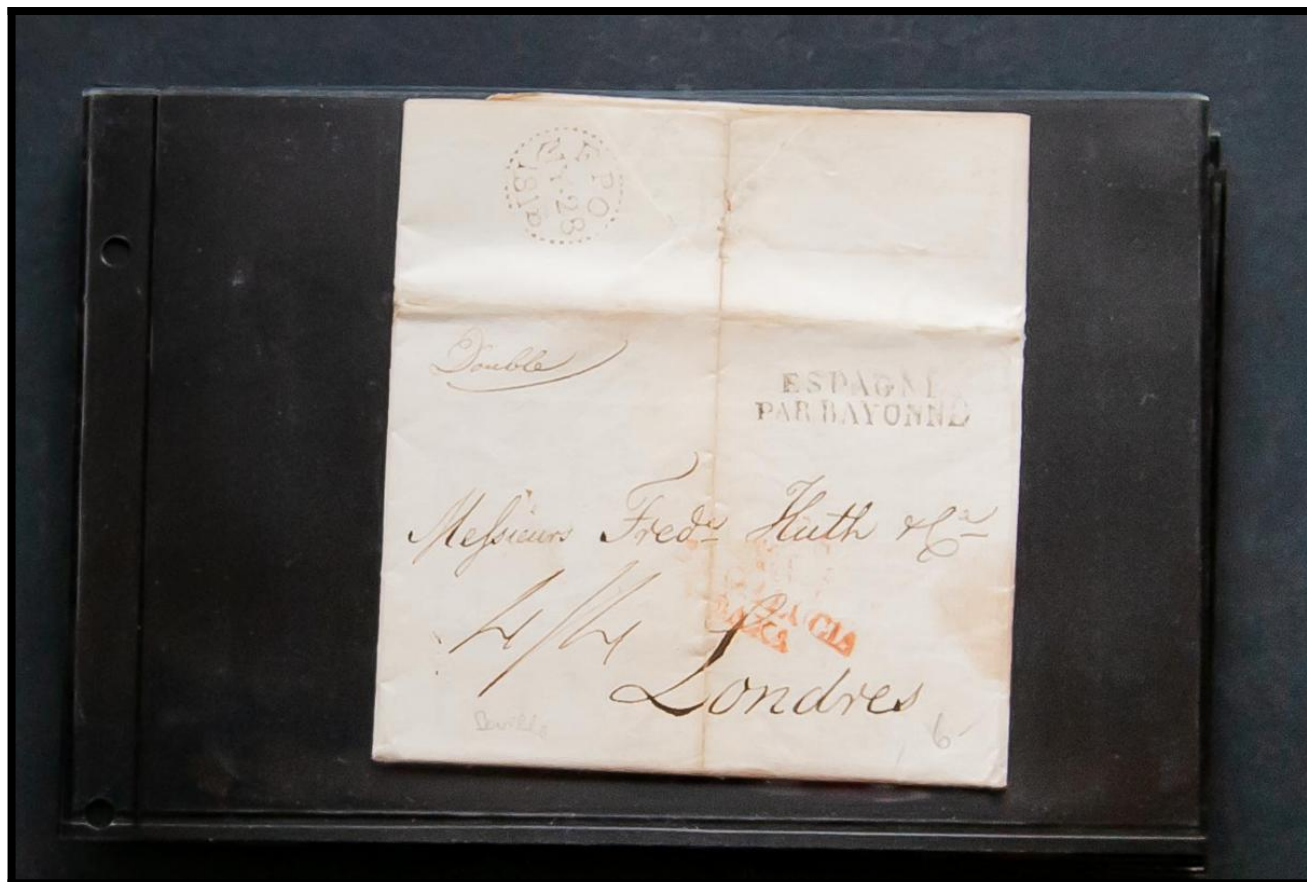 FPO
MY.28
181
Double
ESPAGNE
PAR BAYONNE
Messieurs Fredk Huth & Ce
4/4
Londres
Seville
6